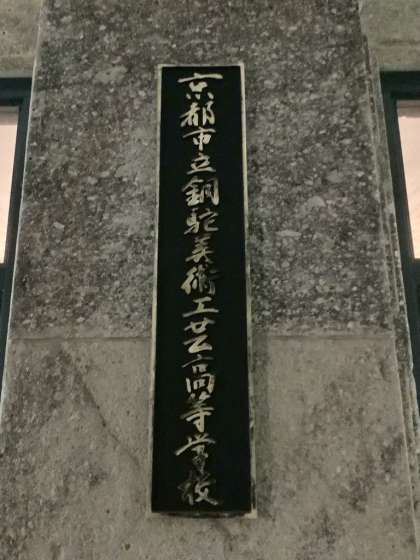 京都市立銅駝美術工芸高等学校